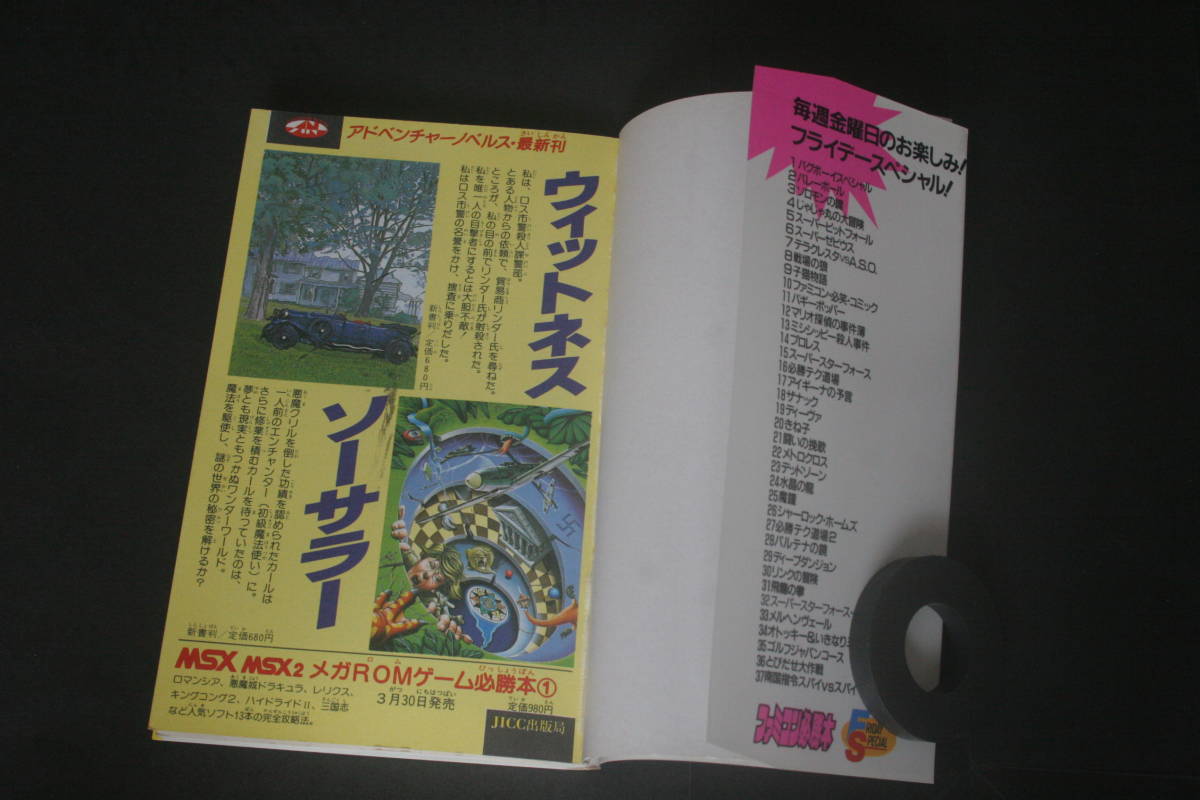 アドベンチャーノベルス・最新刊
ウィットネス
私は、ロス市警殺人課警部。
とある人物からの依頼で、貿易商リンダー氏を尋ねた。
ところが、私の目の前でリンダー氏が射殺された。
私を唯一人の目撃者にするとは大胆不敵!
私はロス市警の名誉をかけ、捜査に乗りだした。
新書判/定価680円
ソーサラー
悪魔クリルを倒した功績を認められたカールは
一人前のエンチャンター(初級魔法使い)に。
さらに修業を積むカールを待っていたのは、
夢とも現実ともつかぬワンダーワールド。
魔法を駆使し、謎の世界の秘密を解けるか?
新書判/定価680円
MSX MSX2 メガROMゲーム必勝本①
ロマンシア、悪魔城ドラキュラ、レリクス、
キングコング2、ハイドライドII、三国志
など人気ソフト13本の完全攻略法。
3月30日発売
定価980円
JICC出版局
毎週金曜日のお楽しみ!
フライデースペシャル!
1 バグボーイスペシャル
2 バレーボール
3 ソロモンの鍵
4 じゃじゃ丸の大冒険
5 スーパーピットフォール
6 スーパーゼビウス
7 テラクレスタvsA.S.O.
8 戦場の狼
9 子猫物語
10 ファミコン・必笑・コミック
11 バギーポッパー
12 マリオ探偵の事件簿
13 ミシシッピー殺人事件
14 プロレス
15 スーパースターフォース
16 必勝テク道場
17 アイギーナの予言
18 ザナック
19 ディーヴァ
20 きね子
21 闘いの挽歌
22 メトロクロス
23 デッドゾーン
24 水晶の龍
25 魔鐘
26 シャーロック・ホームズ
27 必勝テク道場2
28 パルテナの鏡
29 ディープダンジョン
30 リンクの冒険
31 飛龍の拳
32 スーパースターフォース
33 メルヘンヴェール
34 オトッキー&いきなり
35 ゴルフジャパンコース
36 とびだせ大作戦
37 南国指令スパイvsスパイ
ファミコン必勝本
FRIDAY SPECIAL